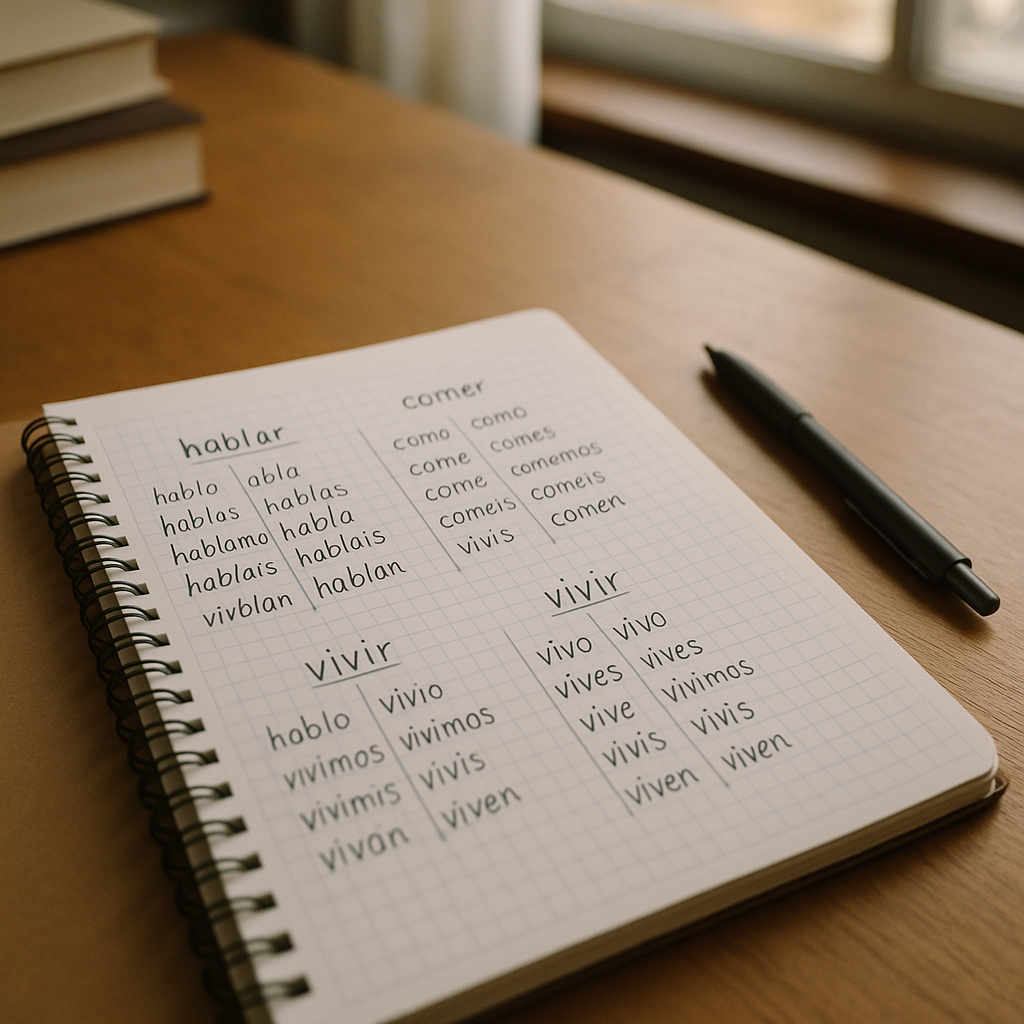 hablar
hablo abla
hablas hablas
hablamo habla
hablais hablais
vivblan hablan
comer
como como
come comes
come comemos
comeis comeis
vivis comen
vivir
hablo vivio
vivimos vivimos
vivimis vivis
vivan viven
vivir
vivo vivo
vives vives
vive vivimos
vivis vivis
viven viven